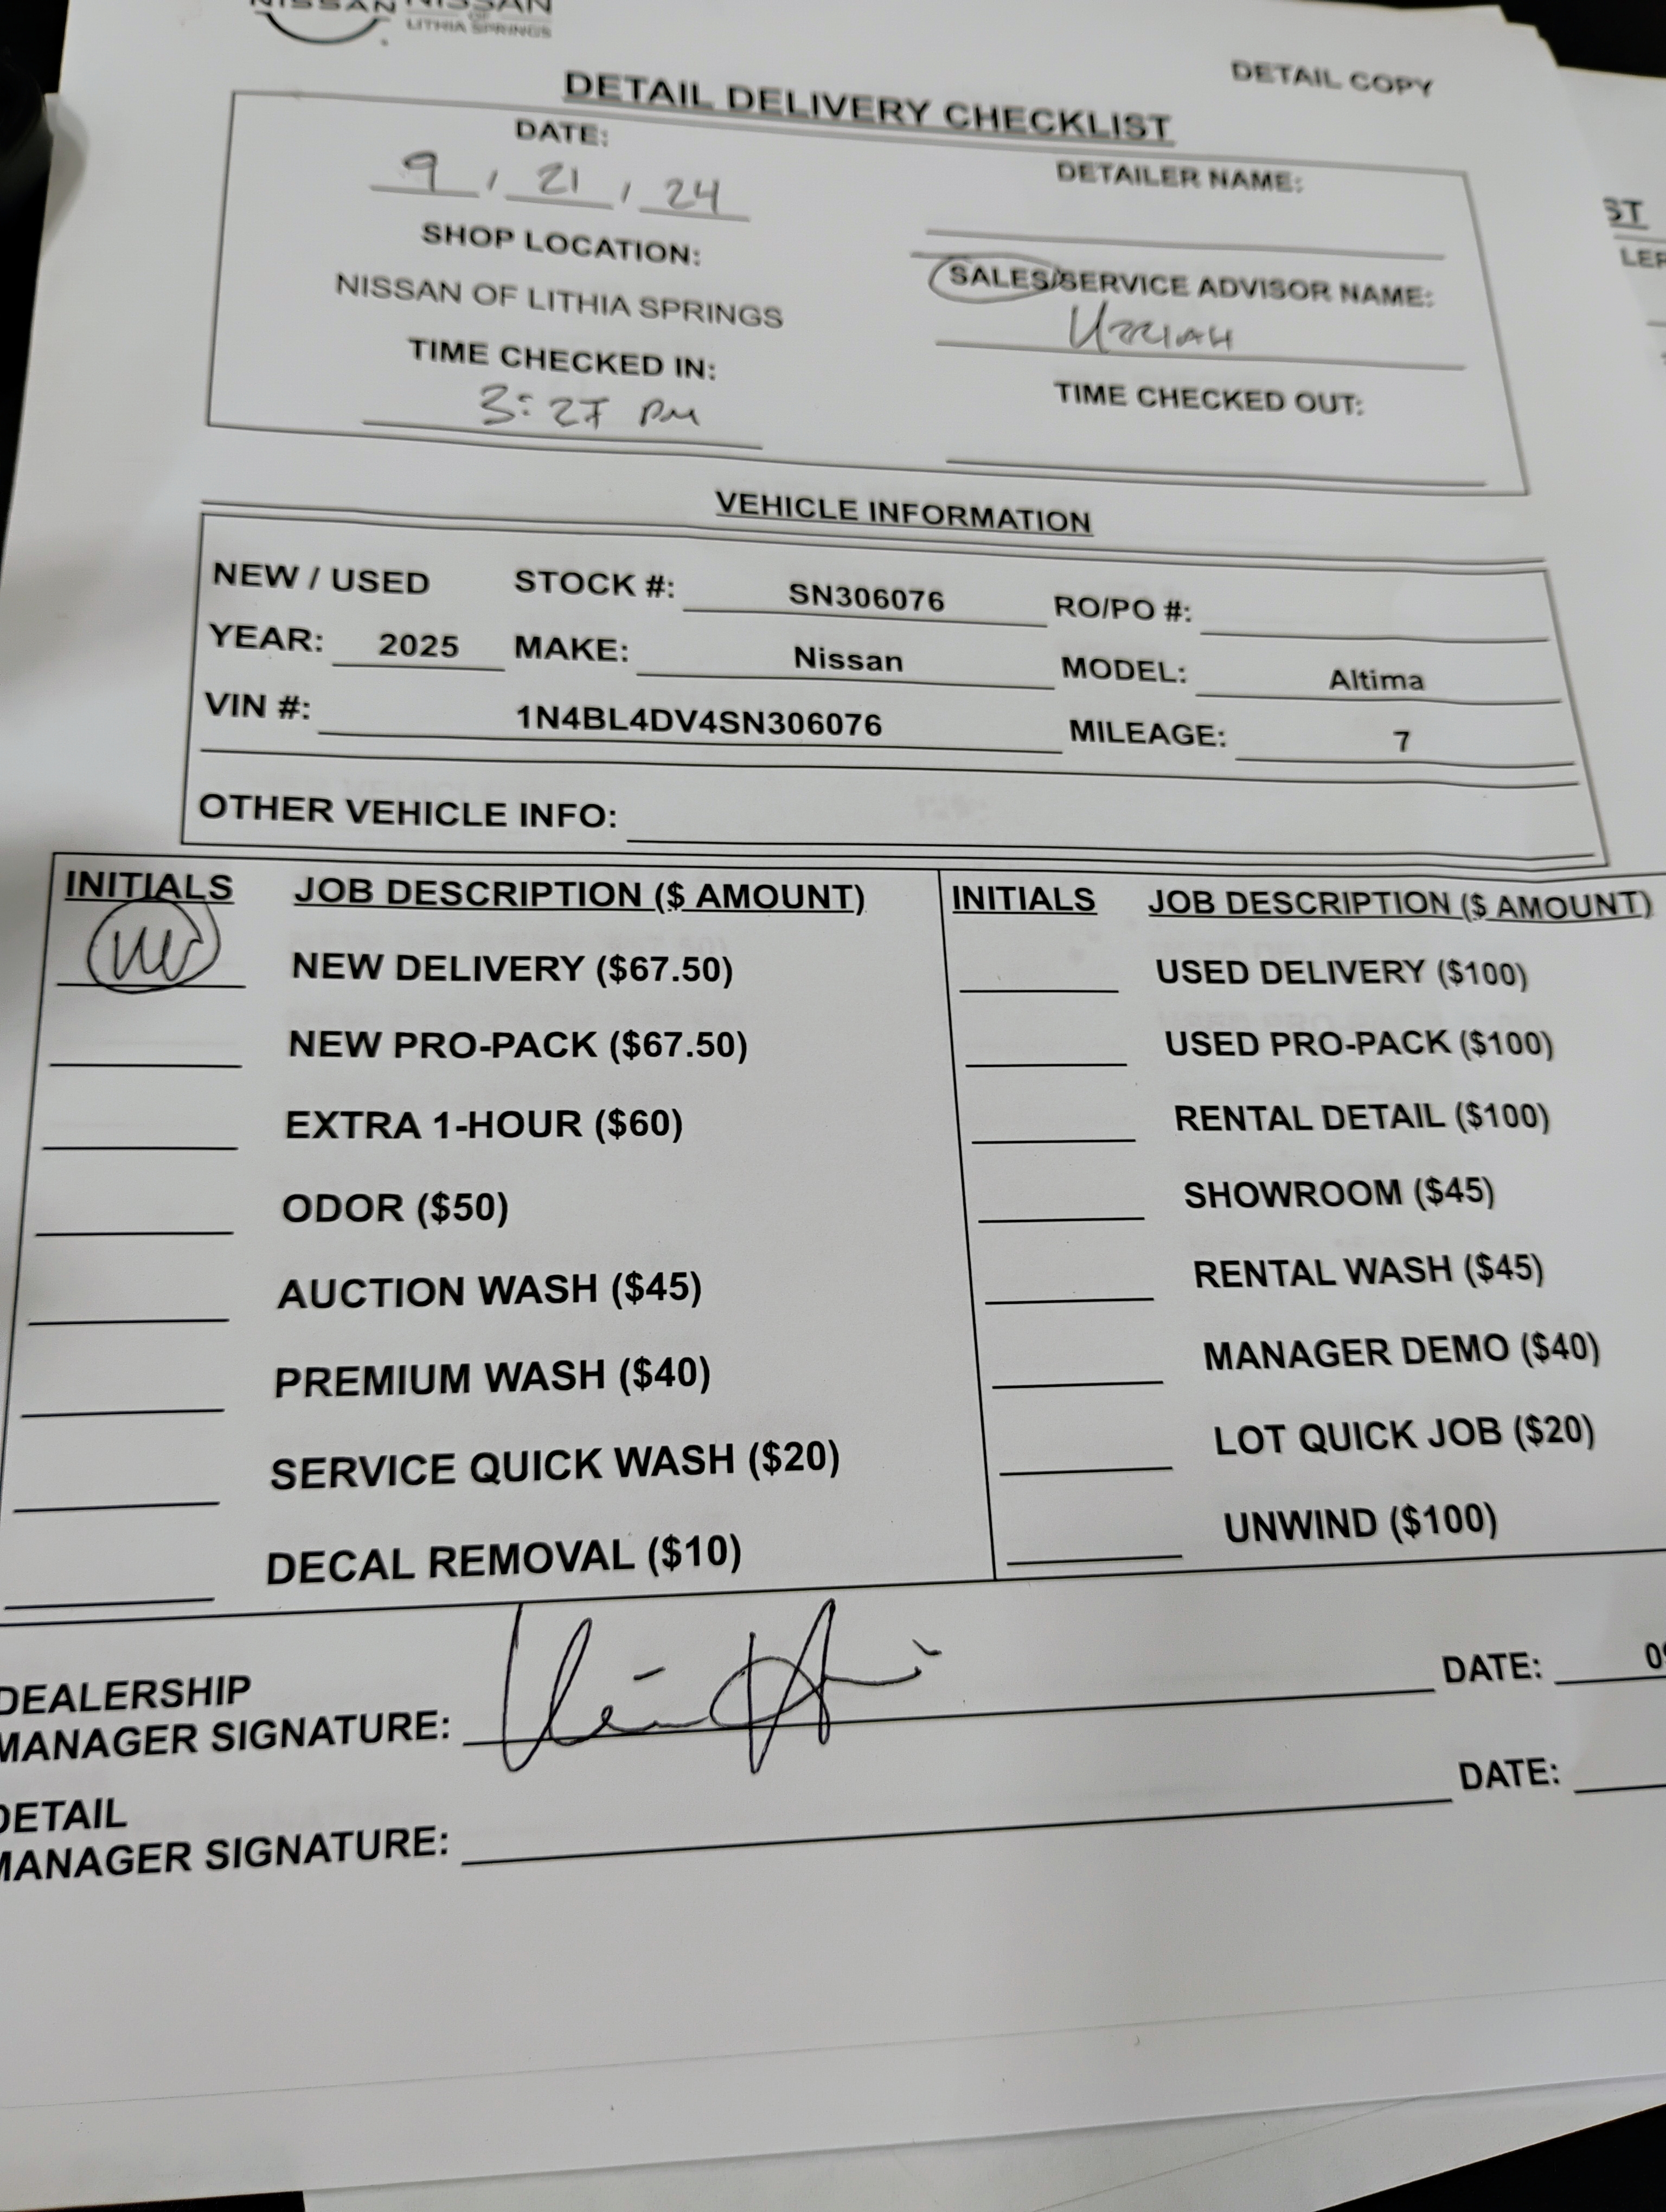 NISSAN NISSAN
OF
LITHIA SPRINGS
DETAIL COPY
DETAIL DELIVERY CHECKLIST
DATE:
9 / 21 / 24
DETAILER NAME:
SHOP LOCATION:
NISSAN OF LITHIA SPRINGS
SALES/SERVICE ADVISOR NAME:
UZZIAH
TIME CHECKED IN:
3:27 PM
TIME CHECKED OUT:
VEHICLE INFORMATION
NEW / USED STOCK #: SN306076 RO/PO #:
YEAR: 2025 MAKE: Nissan MODEL: Altima
VIN #: 1N4BL4DV4SN306076 MILEAGE: 7
OTHER VEHICLE INFO:
INITIALS JOB DESCRIPTION ($ AMOUNT) INITIALS JOB DESCRIPTION ($ AMOUNT)
NEW DELIVERY ($67.50) USED DELIVERY ($100)
NEW PRO-PACK ($67.50) USED PRO-PACK ($100)
EXTRA 1-HOUR ($60) RENTAL DETAIL ($100)
ODOR ($50) SHOWROOM ($45)
AUCTION WASH ($45) RENTAL WASH ($45)
PREMIUM WASH ($40) MANAGER DEMO ($40)
SERVICE QUICK WASH ($20) LOT QUICK JOB ($20)
DECAL REMOVAL ($10) UNWIND ($100)
DEALERSHIP
MANAGER SIGNATURE: DATE:
DETAIL
MANAGER SIGNATURE: DATE: